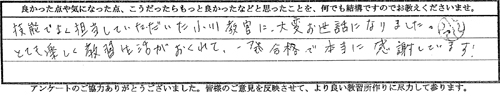 良かった点や気になった点、こうだったらもっと良かったなどと思ったことを、何でも結構ですのでお教えくださいませ。
技能でよく担当していただいた小川教官に、大変お世話になりました。
とても楽しく教習生活がおくれて、一発合格で本当に感謝しています!
アンケートのご協力ありがとうございました。皆様のご意見を反映させて、より良い教習所作りに尽力して参ります。